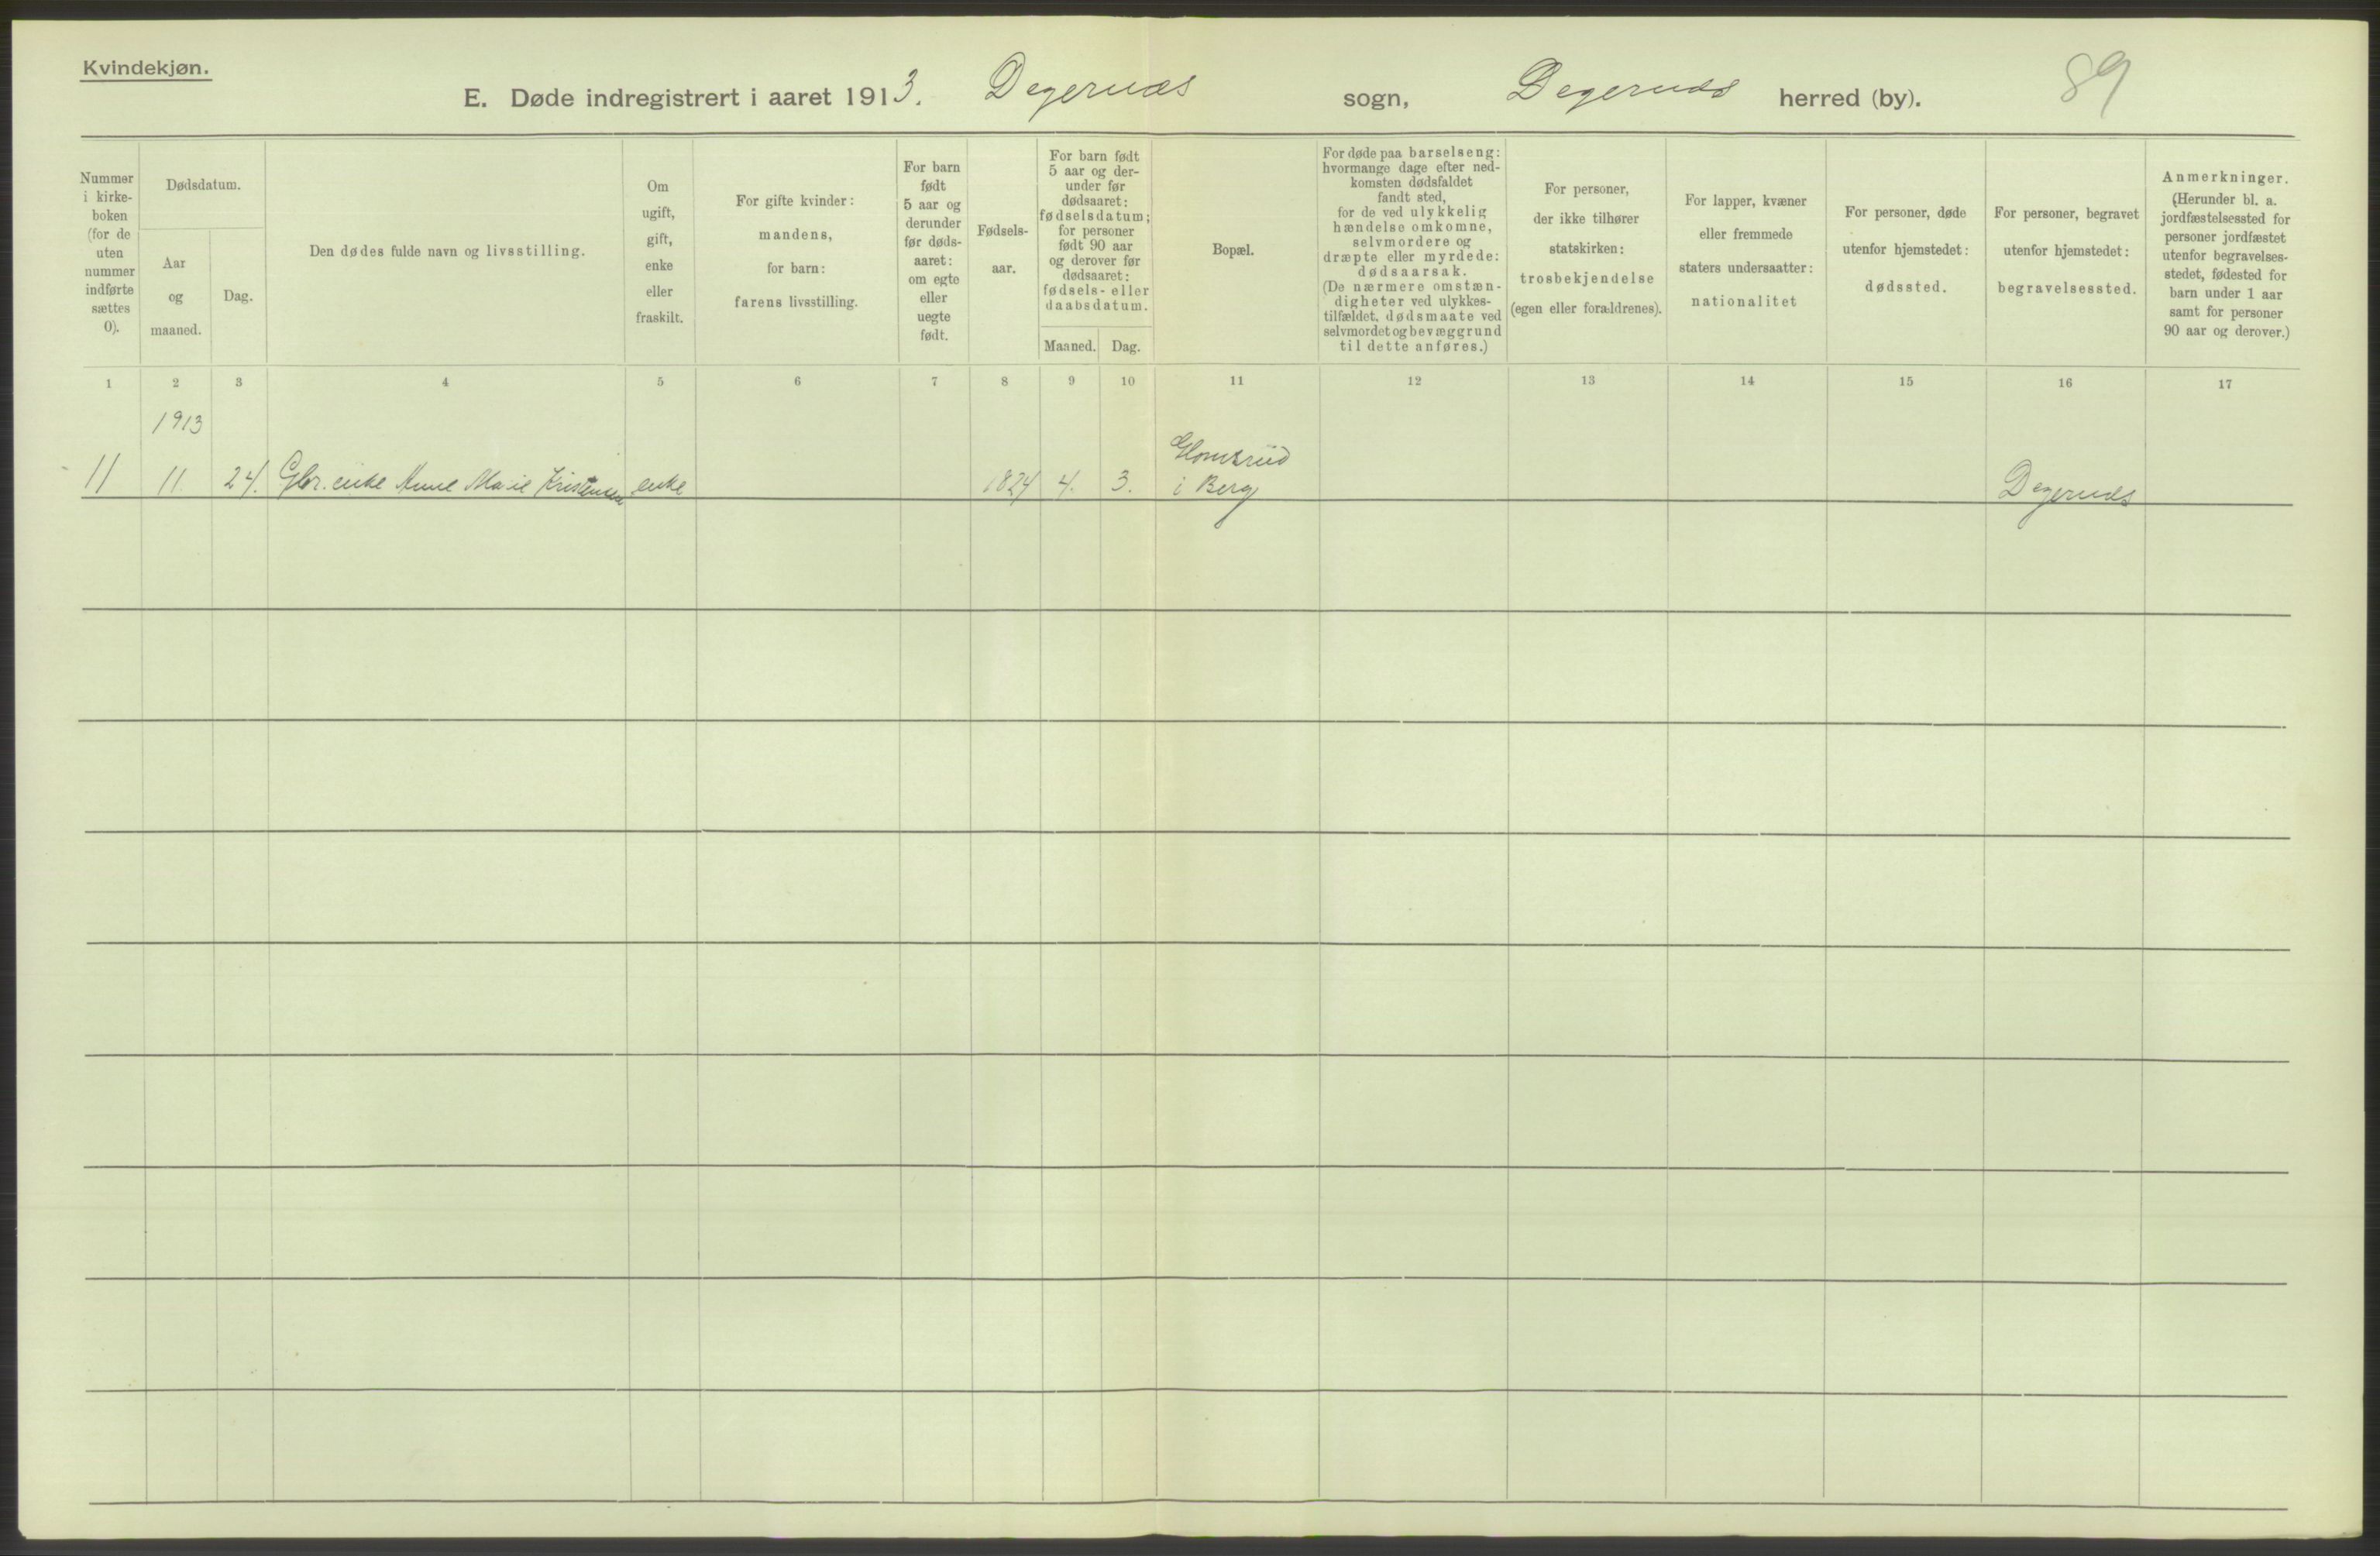 Kvindekjøn.
E. Døde indregistrert i aaret 1913. Degernæs sogn, Degernæs herred (by). 89
Nummer
i kirke-
boken
(for de
uten
nummer
indførte
sættes
0).
Dødsdatum.
Aar
og
maaned.
Dag.
Den dødes fulde navn og livsstilling.
Om
ugift,
gift,
enke
eller
fraskilt.
For gifte kvinder:
mandens,
for barn:
farens livsstilling.
For barn
født
5 aar og
derunder
før døds-
aaret:
om egte
eller
uegte
født.
Fødsels-
aar.
For barn født
5 aar og der-
under før
dødsaaret:
fødselsdatum;
for personer
født 90 aar
og derover før
dødsaaret:
fødsels- eller
daabsdatum.
Maaned. Dag.
Bopæl.
For døde paa barselseng:
hvormange dage efter ned-
komsten dødsfaldet
fandt sted,
for de ved ulykkelig
hændelse omkomne,
selvmordere og
dræpte eller myrdede:
dødsaarsak.
(De nærmere omstæn-
digheter ved ulykkes-
tilfældet, dødsmaate ved
selvmordet og bevæggrund
til dette anføres.)
For personer,
der ikke tilhører
statskirken:
trosbekjendelse
(egen eller forældrenes).
For lapper, kvæner
eller fremmede
staters undersaatter:
nationalitet
For personer, døde
utenfor hjemstedet:
dødssted.
For personer, begravet
utenfor hjemstedet:
begravelsessted.
Anmerkninger.
(Herunder bl. a.
jordfæstelsessted for
personer jordfæstet
utenfor begravelses-
stedet, fødested for
barn under 1 aar
samt for personer
90 aar og derover.)
1 2 3 4 5 6 7 8 9 10 11 12 13 14 15 16 17
1913
11 11 24. Gbr. enke Anne Marie Kristensen enke 1824 4. 3.
i Berg Degernæs